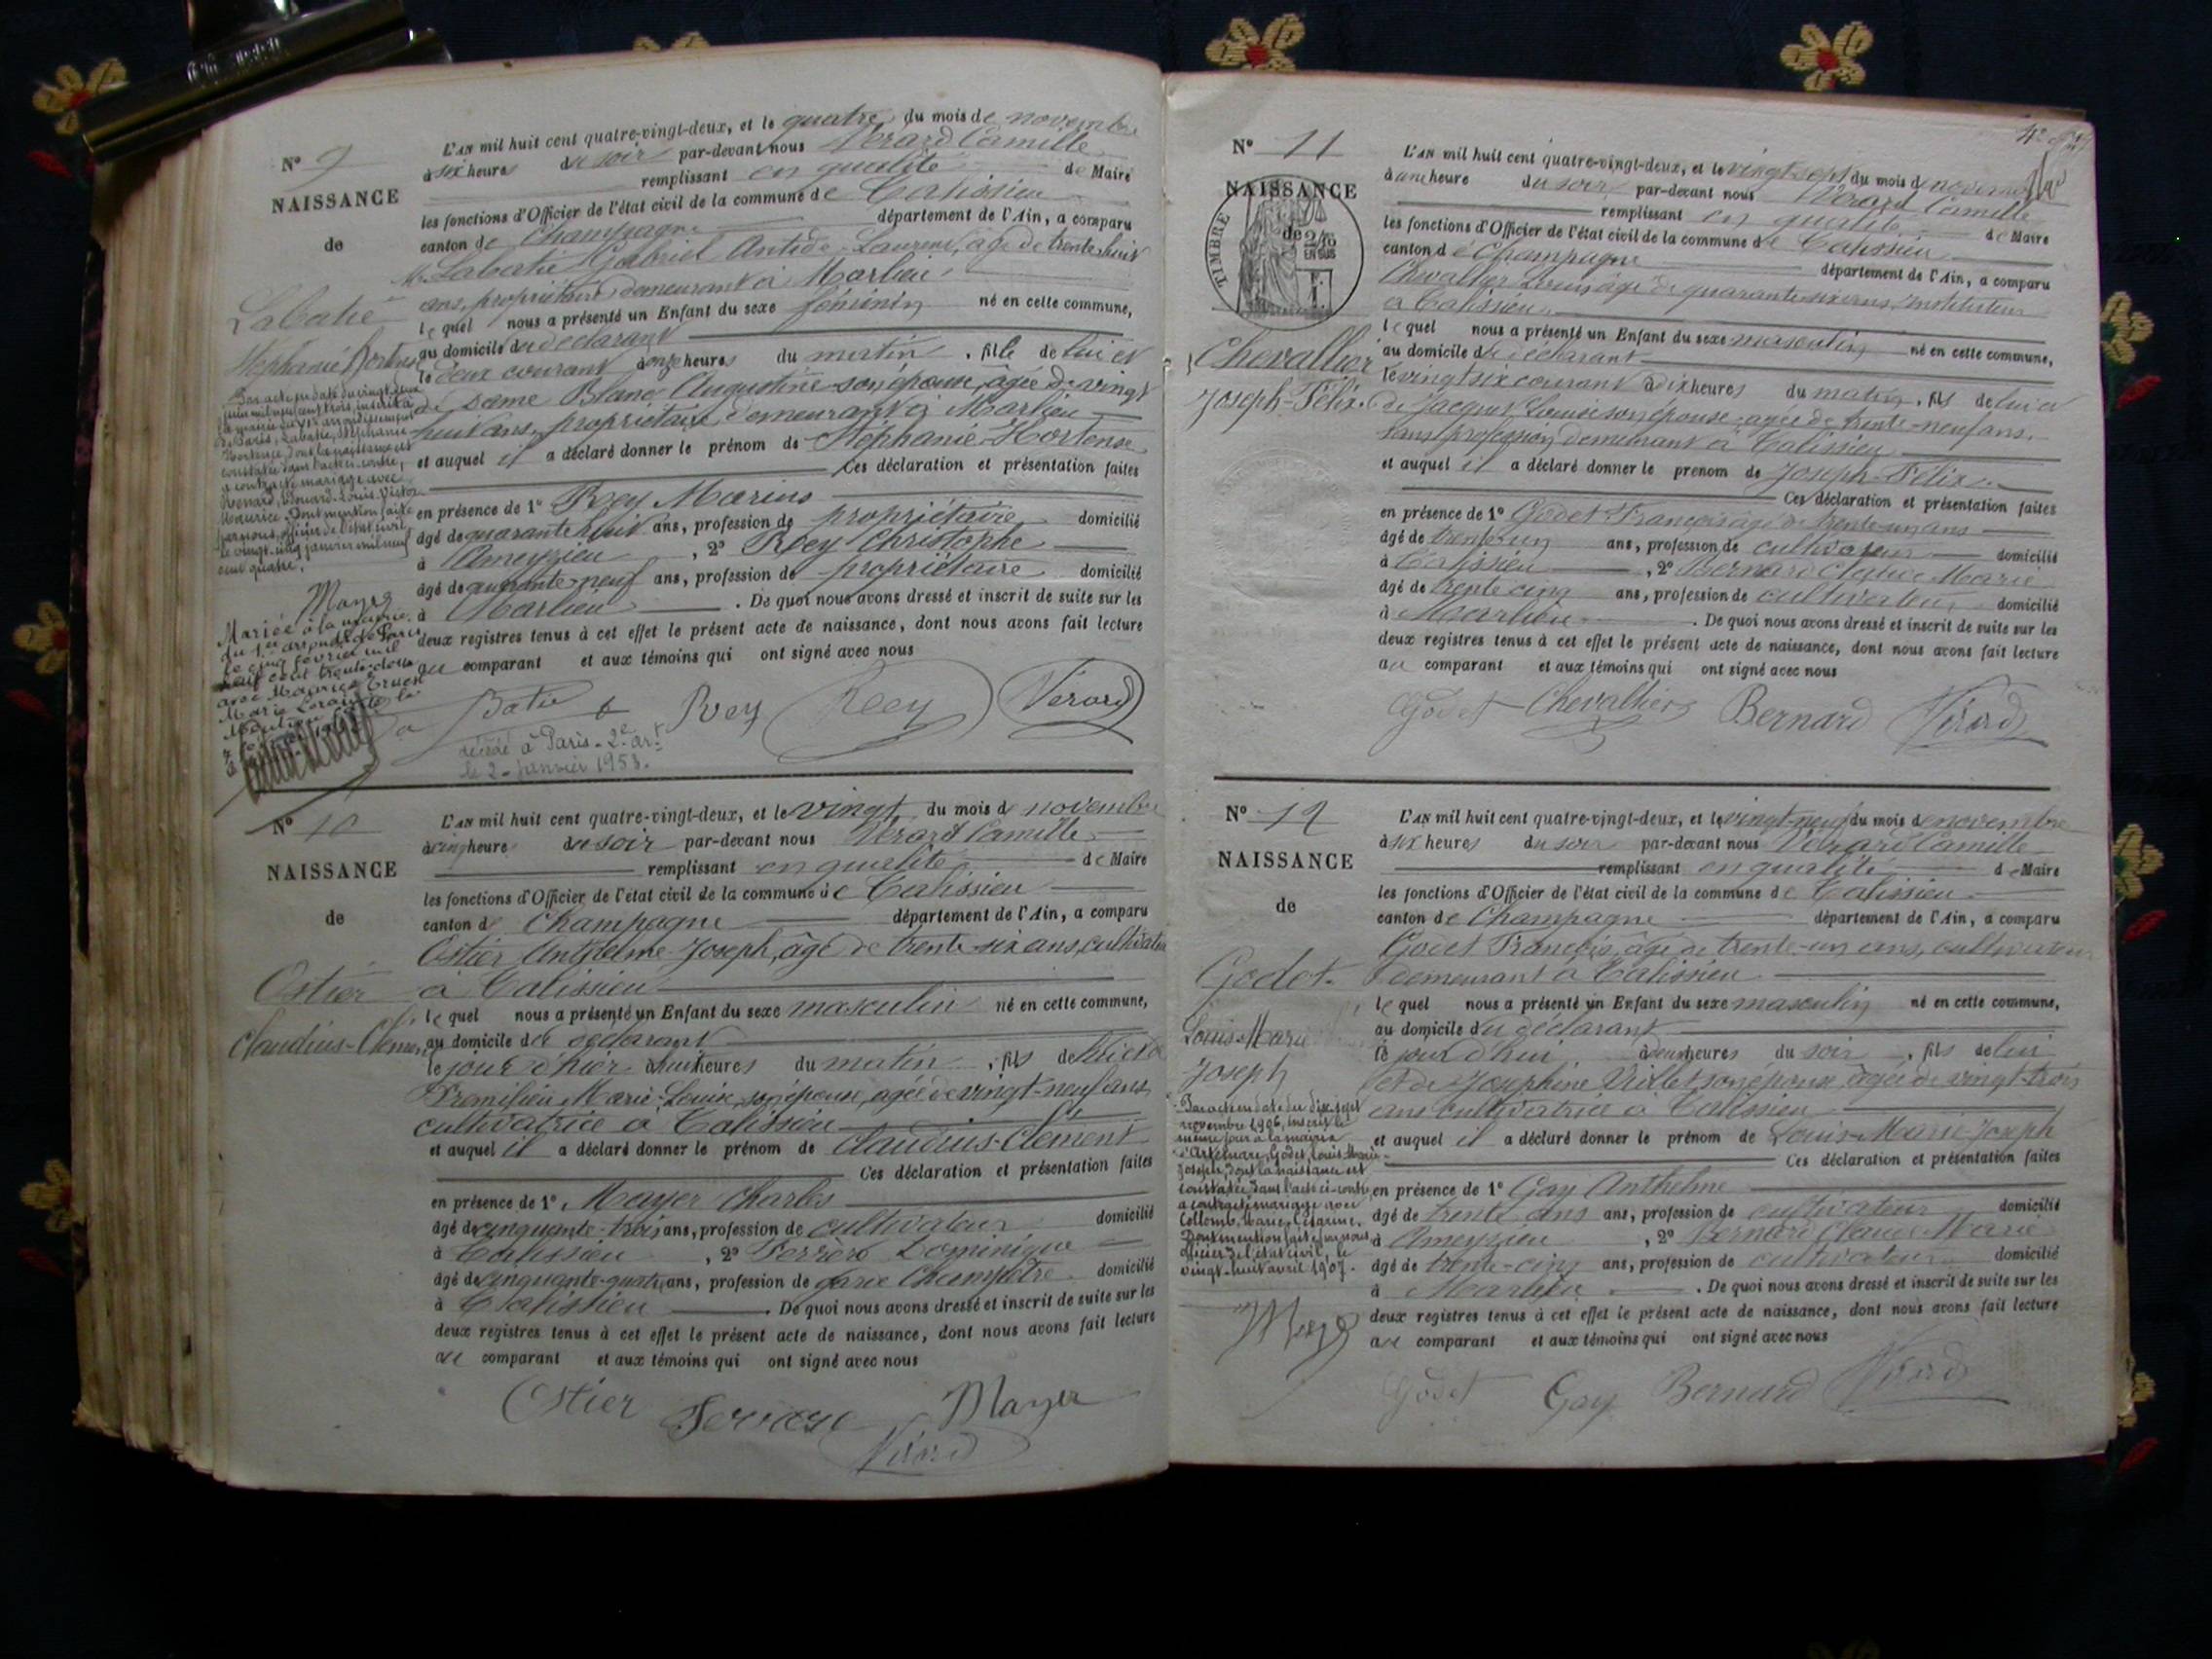 N° 9
NAISSANCE
de
Labatie
Stéphanie Hortense
L'AN mil huit cent quatre-vingt-deux, et le quatre du mois de novembre
à six heures du soir par-devant nous Vérard Camille
remplissant en qualité de Maire
les fonctions d'Officier de l'état civil de la commune de Talissieu
canton de Champagne département de l'Ain, a comparu
M. Labatie Gabriel Antide Laurent, âgé de trente huit
ans, propriétaire demeurant à Marlieu
lequel nous a présenté un Enfant du sexe féminin né en cette commune,
au domicile du déclarant
le deux courant à onze heures du matin, fille de lui et
de dame Blanc Augustine son épouse, âgée de vingt
huit ans, propriétaire demeurant à Marlieu
et auquel il a déclaré donner le prénom de Stéphanie-Hortense
Ces déclaration et présentation faites
en présence de 1° Rey Marius
âgé de quarante huit ans, profession de propriétaire domicilié
à Ameyzieu, 2° Rey Christophe
âgé de quarante-neuf ans, profession de propriétaire domicilié
à Marlieu. De quoi nous avons dressé et inscrit de suite sur les
deux registres tenus à cet effet le présent acte de naissance, dont nous avons fait lecture
au comparant et aux témoins qui ont signé avec nous
Par acte en date du vingt deux
juin mil neuf cent trois, inscrit à
la mairie du arrondissement
de Paris, Labatie, Stéphanie
Hortense, dont la naissance est
constatée dans l'acte ci-contre,
a contracté mariage avec
Renard, Edouard-Louis-Victor
Maurice. Dont mention faite
par nous, officier de l'état civil,
le vingt-cinq janvier mil neuf
cent quatre.
Mayer
Mariée à la mairie
du 1er arrond. de Paris
le cinq février mil
neuf cent trente-deux
avec Maurice
Marie
Batie Rey Rey Vérard
décédé à Paris-2e-art
le 2-janvier 1958.
N° 10
NAISSANCE
de
Ostier
Claudius-Clément
L'AN mil huit cent quatre-vingt-deux, et le vingt du mois de novembre
à cinq heures du soir par-devant nous Vérard Camille
remplissant en qualité de Maire
les fonctions d'Officier de l'état civil de la commune de Talissieu
canton de Champagne département de l'Ain, a comparu
Ostier Anthelme Joseph, âgé de trente six ans, cultivateur
à Talissieu
lequel nous a présenté un Enfant du sexe masculin né en cette commune,
au domicile du déclarant
le jour d'hier à huit heures du matin, fils de lui et de
Promilieu Marie Louise, son épouse, âgée de vingt-neuf ans
cultivatrice à Talissieu
et auquel il a déclaré donner le prénom de Claudius-Clément
Ces déclaration et présentation faites
en présence de 1° Mayer Charles
âgé de cinquante-trois ans, profession de cultivateur domicilié
à Talissieu, 2° Ferrère Dominique
âgé de cinquante-quatre ans, profession de garde Champêtre domicilié
à Talissieu. De quoi nous avons dressé et inscrit de suite sur les
deux registres tenus à cet effet le présent acte de naissance, dont nous avons fait lecture
au comparant et aux témoins qui ont signé avec nous
Ostier Ferrere Mayer
Vérard
N° 11
NAISSANCE
de
TIMBRE
2/10
EN SUS
Chevallier
Joseph-Félix.
L'AN mil huit cent quatre-vingt-deux, et le vingt sept du mois de novembre
à une heure du soir par-devant nous Vérard Camille
remplissant en qualité de Maire
les fonctions d'Officier de l'état civil de la commune de Talissieu
canton de Champagne département de l'Ain, a comparu
Chevallier Louis âgé de quarante-six ans, Instituteur
à Talissieu
lequel nous a présenté un Enfant du sexe masculin né en cette commune,
au domicile du déclarant
le vingt six courant à dix heures du matin, fils de lui et
de Jacquet Louise son épouse âgée de trente-neuf ans.
sans profession demeurant à Talissieu
et auquel il a déclaré donner le prenom de Joseph-Félix.
Ces déclaration et présentation faites
en présence de 1° Godet François âgé de trente-un ans
âgé de trente-un ans, profession de cultivateur domicilié
à Talissieu, 2° Bernard Claude Marie
âgé de trente cinq ans, profession de cultivateur domicilié
à Marlieu. De quoi nous avons dressé et inscrit de suite sur les
deux registres tenus à cet effet le présent acte de naissance, dont nous avons fait lecture
au comparant et aux témoins qui ont signé avec nous
Godet Chevallier Bernard Vérard
N° 12
NAISSANCE
de
Godet
Louis-Marie
Joseph
L'AN mil huit cent quatre-vingt-deux, et le vingt-neuf du mois de novembre
à six heures du soir par-devant nous Vérard Camille
remplissant en qualité de Maire
les fonctions d'Officier de l'état civil de la commune de Talissieu
canton de Champagne département de l'Ain, a comparu
Godet François, âgé de trente-un ans, cultivateur
demeurant à Talissieu
lequel nous a présenté un Enfant du sexe masculin né en cette commune,
au domicile du déclarant
le jour d'hui à deux heures du soir, fils de lui
et de Joséphine Viollet son épouse âgée de vingt-trois
ans cultivatrice à Talissieu
et auquel il a déclaré donner le prénom de Louis-Marie Joseph
Ces déclaration et présentation faites
en présence de 1° Gay Anthelme
âgé de trente ans ans, profession de cultivateur domicilié
à Ameyzieu, 2° Bernard Claude Marie
âgé de trente-cinq ans, profession de cultivateur domicilié
à Marlieu. De quoi nous avons dressé et inscrit de suite sur les
deux registres tenus à cet effet le présent acte de naissance, dont nous avons fait lecture
au comparant et aux témoins qui ont signé avec nous
Par acte en date du dix-sept
novembre 1906, inscrit le
même jour à la mairie
d'Artemare, Godet, Louis-Marie-
Joseph, dont la naissance est
constatée dans l'acte ci-contre
a contracté mariage avec
Collomb, Marie, Césarine.
Dont mention faite par nous
officier de l'état civil, le
vingt-huit avril 1907.
Godet Gay Bernard Vérard